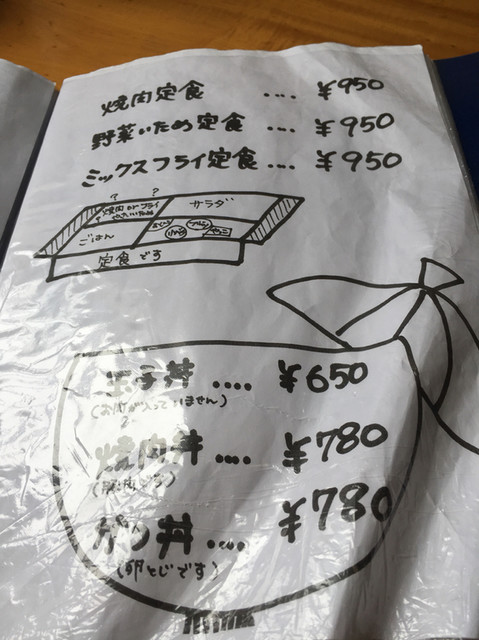 焼肉定食 .... ¥950
野菜いため定食 .... ¥950
ミックスフライ定食 .... ¥950
? ?
焼肉orフライ
やさいいため
サラダ
ごはん
プリン
定食です
玉子丼 .... ¥650
(お肉が入っていません)
焼肉丼 .... ¥780
(豚肉です)
かつ丼 .... ¥780
(卵とじです)